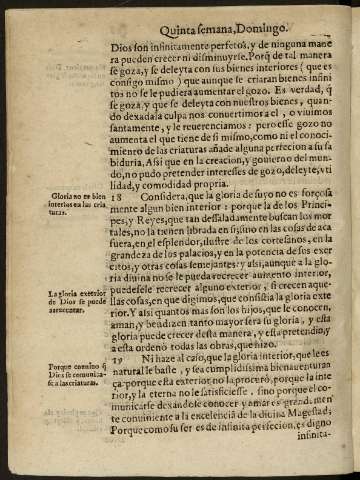 Quinta semana, Domingo.
Dios son infinitamente perfetos, y de ninguna mane
ra pueden crecer ni disminuyrse. Porq̃ de tal manera
se goza, y se deleyta con sus bienes interiores (que es
consigo mismo) que aunque se criaran bienes infini
tos no se le pudiera aumentar el gozo. Es verdad, q̃
se goza y que se deleyta con nuestros bienes, quan-
do dexada la culpa nos conuertimos a el, o viuimos
santamente, y le reuerenciamos: pero esse gozo no
aumenta el que tiene de si mismo, como ni el conoci-
miento de las criaturas añade alguna perfecion a su sa
biduria, Assi que en la creacion, y gouierno del mun-
do, no pudo pretender interesses de gozo, deleyte, vti
lidad, y comodidad propria.
Gloria no es bien
interior en las cria
turas.
18 Considera, que la gloria de suyo no es forçosa
mente algun bien interior: porque la de los Princi-
pes, y Reyes, que tan dessaladamente buscan los mor
tales, no la tienen librada en si, sino en las cosas de aca
fuera, en el esplendor, ilustre de los cortesanos, en la
grandeza de los palacios, y en la potencia de sus exer
citos, y otras cosas semejantes: y assi, aunque a la glo
ria diuina no se le pueda recrecer aumento interior,
puedesele recrecer alguno exterior, si crecen aque-
La gloria exterior
de Dios se puede
aumentar.
llas cosas, en que digimos, que consistia la gloria exte
rior. Y assi quantos mas son los hijos, que le conocen,
aman, y bendizen tanto mayor sera su gloria, y esta
gloria puede crecer desta manera, y esta pretendio, y
a esta ordenò todas las obras, que hizo.
19 Ni haze al caso, que la gloria interior, que le es
Porque conuino q̃
Dios se comunicas-
se a las criaturas.
natural le baste, y sea cumplidissima bienauenturan
ça: porque esta exterior, no la procurò, porque la inte
rior, y la eterna no le satisficiesse, sino porque el co-
municarse dexandose conocer y amar es grandemen
te conuiniente a la excelencia de la diuina Magestad;
Porque como su ser es de infinita perfeccion, es digno
infinita-